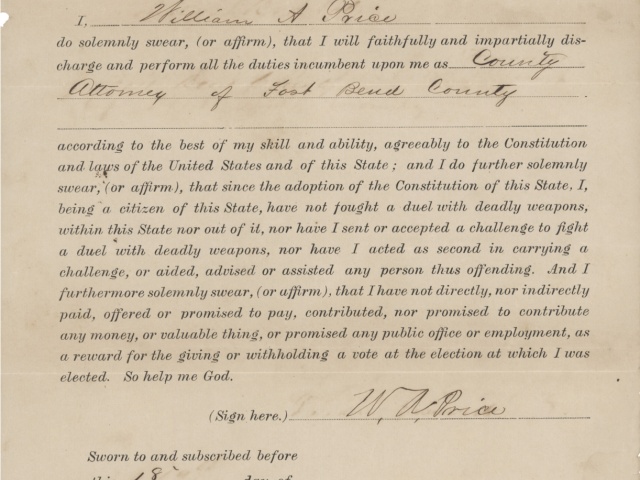 I, William A Price
do solemnly swear, (or affirm), that I will faithfully and impartially dis-
charge and perform all the duties incumbent upon me as County
Attorney of Fort Bend County
according to the best of my skill and ability, agreeably to the Constitution
and laws of the United States and of this State; and I do further solemnly
swear, (or affirm), that since the adoption of the Constitution of this State, I,
being a citizen of this State, have not fought a duel with deadly weapons,
within this State nor out of it, nor have I sent or accepted a challenge to fight
a duel with deadly weapons, nor have I acted as second in carrying a
challenge, or aided, advised or assisted any person thus offending. And I
furthermore solemnly swear, (or affirm), that I have not directly, nor indirectly
paid, offered or promised to pay, contributed, nor promised to contribute
any money, or valuable thing, or promised any public office or employment, as
a reward for the giving or withholding a vote at the election at which I was
elected. So help me God.
(Sign here.) W. A. Price
Sworn to and subscribed before
this 18 day of